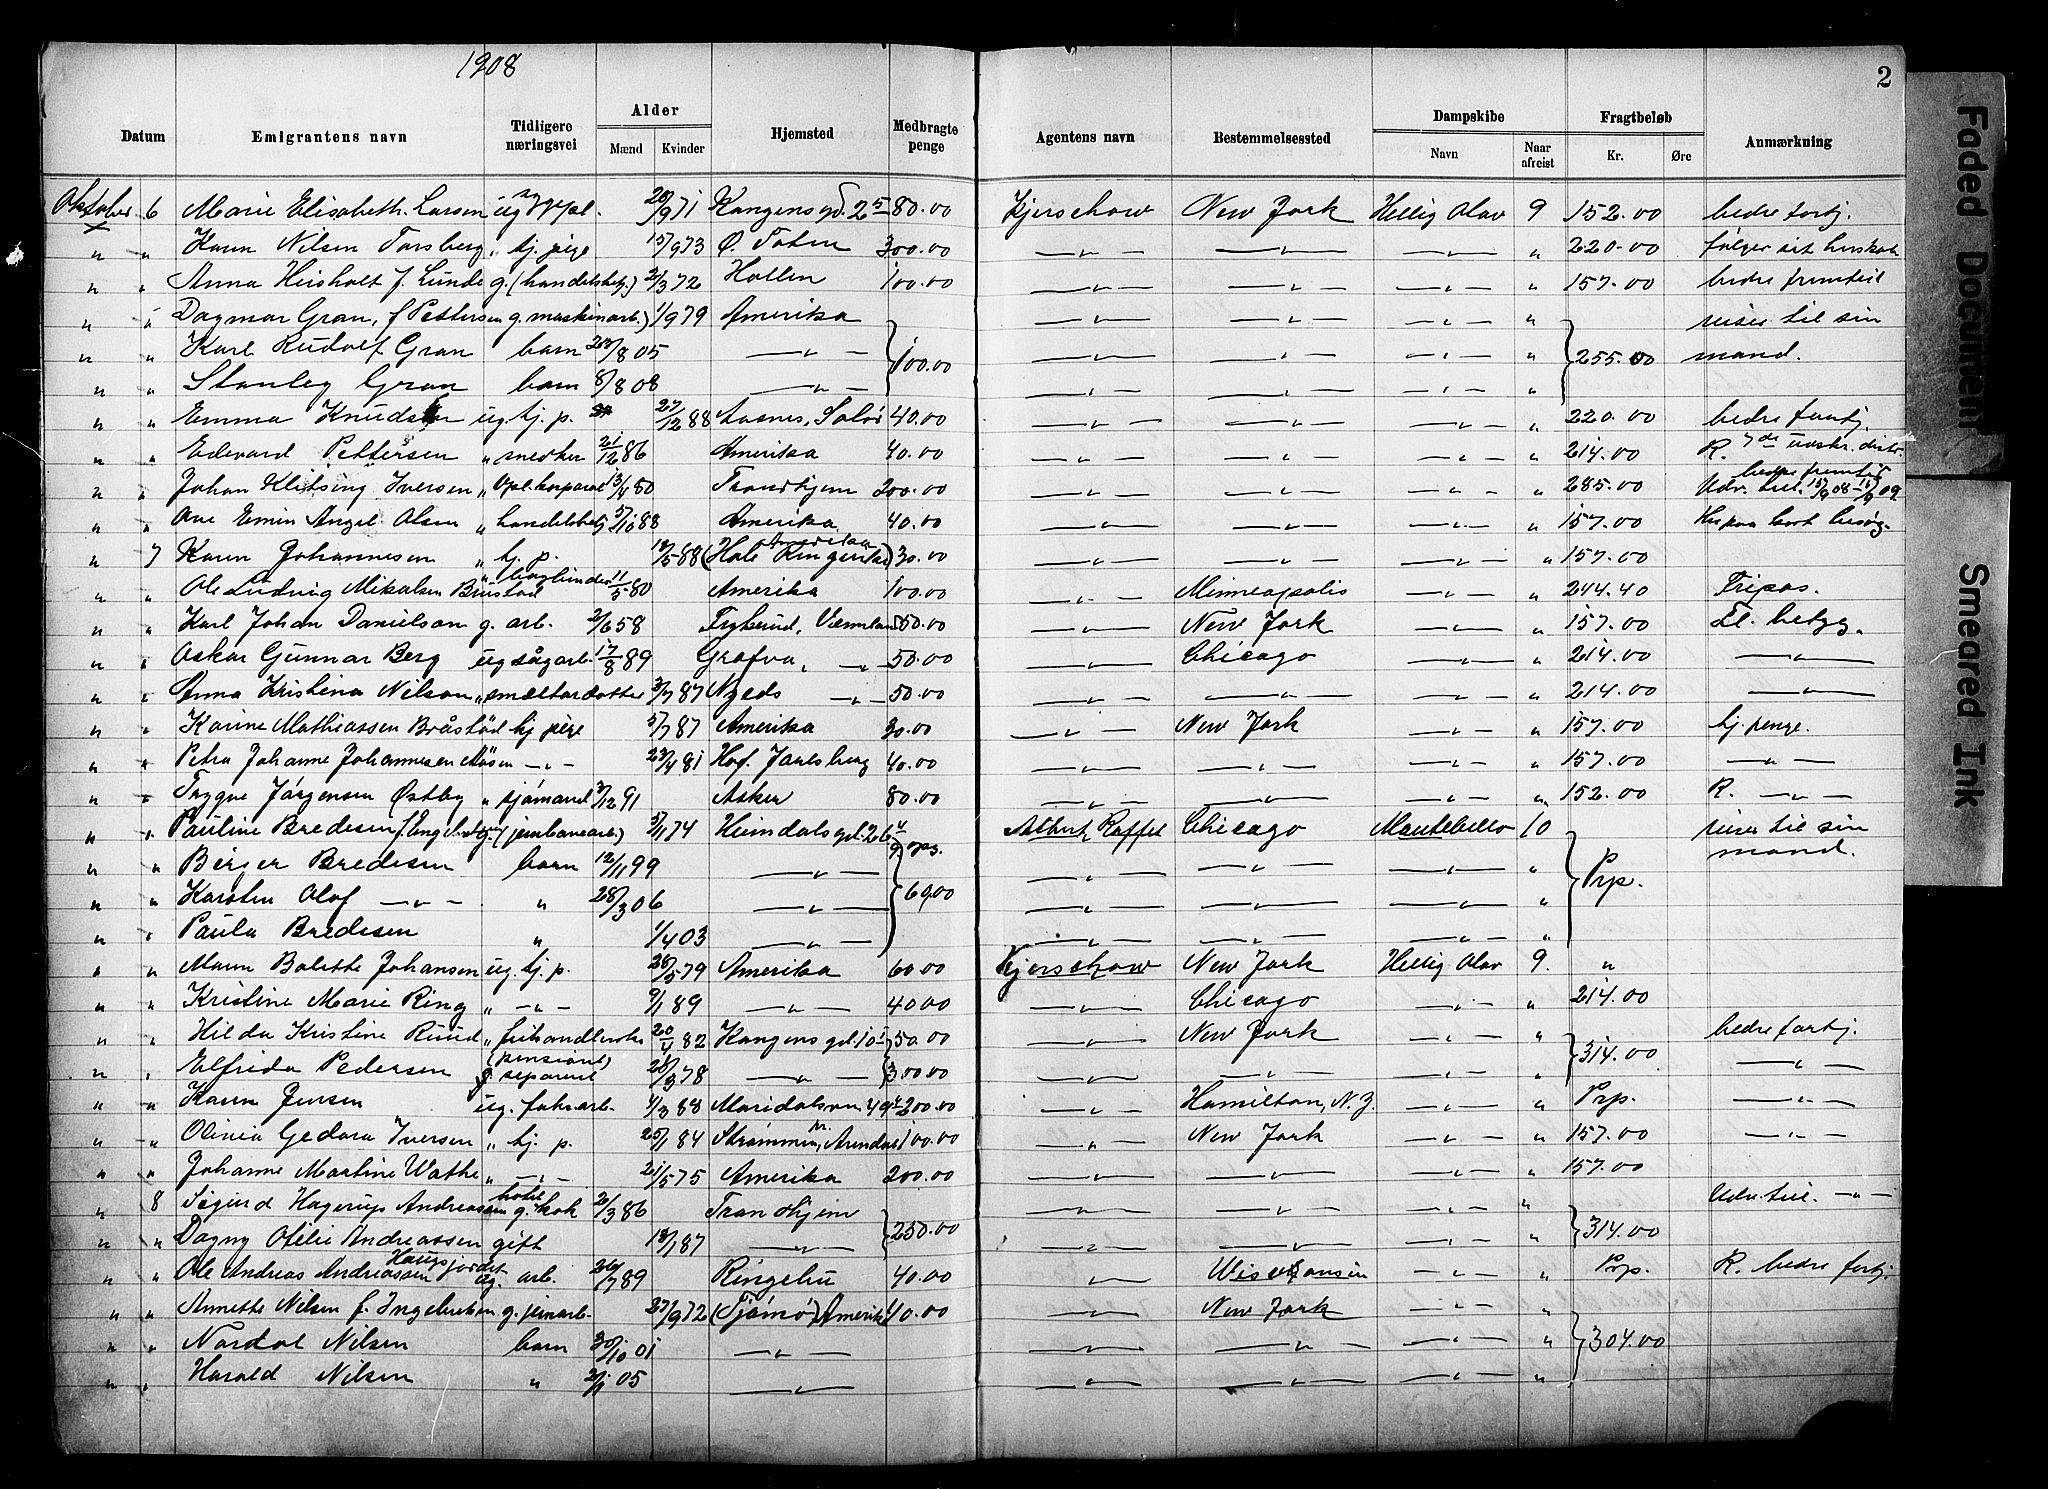 1908
2
Datum Emigrantens navn Tidligere næringsvei Alder Mænd Kvinder Hjemsted Medbragte penge Agentens navn Bestemmelsessted Dampskibe Navn Naar afreist Fragtbeløb Kr. Øre Anmærkning
Oktober 6 Marie Elisabeth Larsen ug 20/9 71 Kongens gd. 25 80.00 Kjerschow New York Hellig Olav 9 152.00 bedre fortj.
" " Karen Nilsen Torsberg " tj. pige 15/9 73 Ø. Toten 300.00 —"— —"— —"— " 220.00 følger sit herskab
" " Anna Heisholt f. Lunde g. (handelsbetj.) 2/3 72 Hollen 100.00 —"— —"— —"— " 157.00 bedre fremtid
" " Dagmar Gran, f. Pettersen g. maskinarb.) 1/9 79 Amerika —"— —"— —"— " reiser til sin
" " Karl Rudolf Gran barn 28/8 05 —"— 100.00 —"— —"— —"— " 255.00 mand.
" " Stanley Gran barn 8/8 08 —"— —"— —"— —"— "
" " Emma Knudsen ug. tj. p. 27/12 88 Aasnes, Solør 40.00 —"— —"— —"— " 220.00 bedre fortj.
" " Edevard Pettersen " snedker 21/12 86 Amerika 40.00 —"— —"— —"— " 214.00 R. 7de udskr. distr.
" " Johan Klitsing Iversen " korporal 13/4 80 Trondhjem 200.00 —"— —"— —"— " 285.00 bedre fremtid Udv. till. 15/9 08 - 15/9 09
" " Ove Emin Angel Olsen " handelsbetj 5/10 88 Amerika 40.00 —"— —"— —"— " 157.00 Her paa kort besøg.
" 7 Karen Johannesen " tj. p. 18/5 88 (Hole Ringerike) Amerika 30.00 —"— —"— —"— " 157.00
" " Ole Ludvig Mikalsen Brustad " bogbinder 11/5 80 Amerika 100.00 —"— Minneapolis —"— " 244.40 Tripas.
" " Karl Johan Danielson g. arb. 2/6 58 Fryksend, Vermland 550.00 —"— New York —"— " 157.00 Fl. betyg.
" " Oskar Gunnar Berg ug sågarb. 17/8 89 Grafva, —"— 50.00 —"— Chicago —"— " 214.00 —"—
" " Anna Kristina Nilson " smeltardotter 3/7 87 Nyeds —"— 50.00 —"— —"— —"— " 214.00 —"—
" " Karine Mathiassen Bråstad tj. pige 5/7 87 Amerika 30.00 —"— New York —"— " 157.00 tj. penge.
" " Petra Johanne Johannesen Møsen —"— 23/4 81 Hof. Jarlsberg 40.00 —"— —"— —"— " 157.00 —"—
" " Trygve Jørgensen Østby " sjømand 3/12 91 Asker 80.00 —"— —"— —"— " 152.00 R. —"—
" " Pauline Bredesen g. (jernbanearb.) 5/11 74 Heimdals gd. 26 Albert Raffel Chicago Montebello 10 reiser til sin
" " Birger Bredesen barn 12/11 99 —"— —"— —"— —"— " Prp. mand.
" " Karsten Olaf —"— " 28/3 06 —"— 60.00 —"— —"— —"— "
" " Paula Bredesen " 1/4 03 —"— —"— —"— —"— "
" " Maren Bolette Johansen ug. tj. p. 28/5 79 Amerika 60.00 Kjerschow New York Hellig Olav 9. "
" " Kristine Marie Ring " —"— 9/1 89 —"— 40.00 —"— Chicago —"— " 214.00
" " Hilda Kristine Ruud " frihandlerske 20/4 82 Kongens gd. 10 50.00 —"— New York —"— " bedre fortj.
" " Elfrida Pedersen (pensionat) g. separert 28/3 78 —"— 300.00 —"— —"— —"— " 314.00 —"—
" " Karen Jensen ug. fabr. arb. 4/3 88 Maridalsvn. 49 200.00 —"— Hamilton, N. Y. —"— " Prp. —"—
" " Olivia Gedora Iversen " tj. p. 25/1 84 Strømmen, Arendal 100.00 —"— New York —"— " 157.00 —"—
" " Johanne Martine Wathe " —"— 21/5 75 Amerika 200.00 —"— —"— —"— " 157.00
" 8 Sigurd Hagerup Andreassen hotel g. kok 2/3 86 Trondhjem —"— —"— —"— " Udv. till. —"—
" " Dagny Otilie Andreassen gift 18/1 87 —"— 250.00 —"— —"— —"— " 314.00
" " Ole Andreas Andreassen Haugsjordet ug. arb. 26/7 89 Ringebu 40.00 —"— Wisconsin —"— " Prp. R. bedre fortj.
" " Annette Nilsen f. Ingebretsen g. jernarb. 27/9 72 (Tjømø) Amerika 40.00 —"— New York —"— "
" " Nordol Nilsen barn 30/10 01 —"— —"— —"— —"— " 304.00
" " Harald Nilsen " 2/1 05 —"— —"— —"— —"— "
Faded Document
Smeared Ink